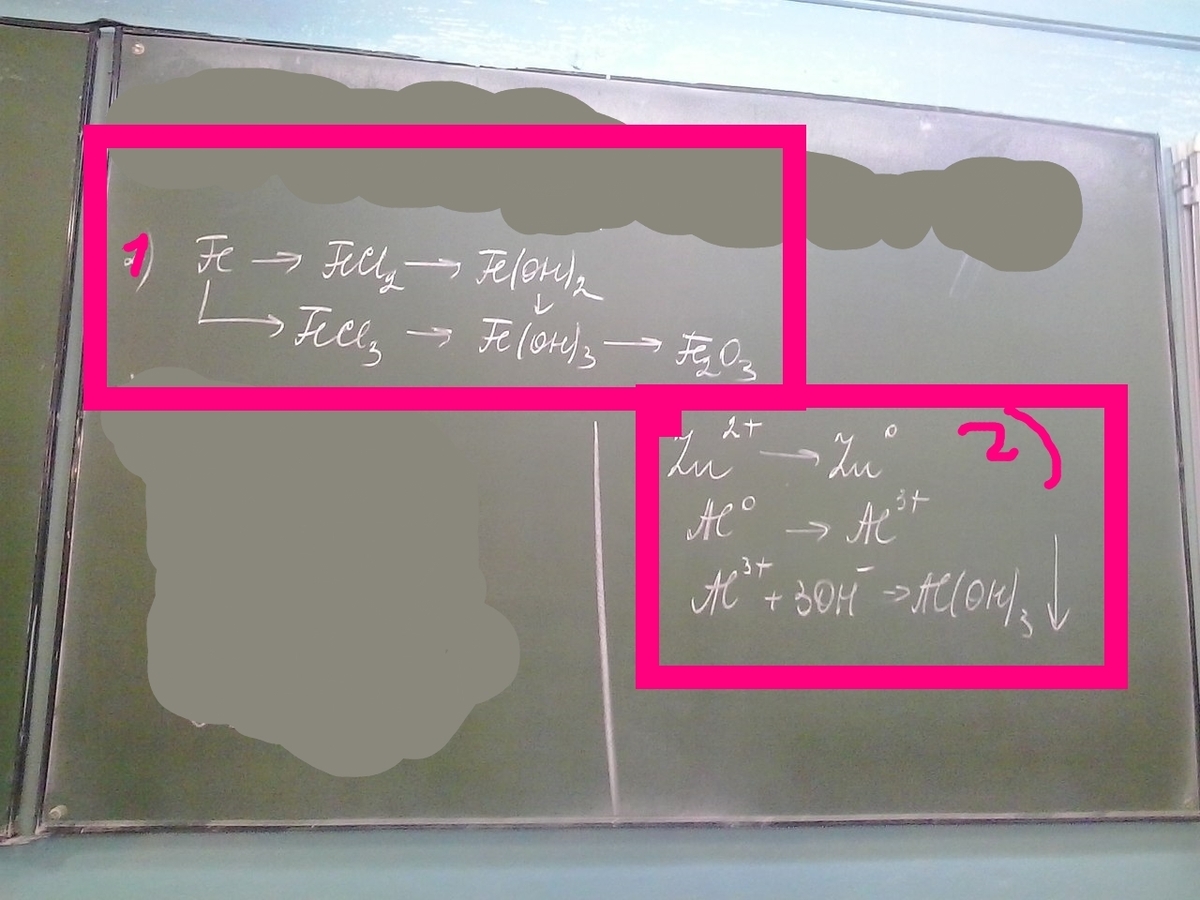 1) Fe → FeCl₂ → Fe(OH)₂
↓
↳ FeCl₃ → Fe(OH)₃ → Fe₂O₃
2)
Zn²⁺ → Zn⁰
Al⁰ → Al³⁺
Al³⁺ + 3OH⁻ → Al(OH)₃ ↓